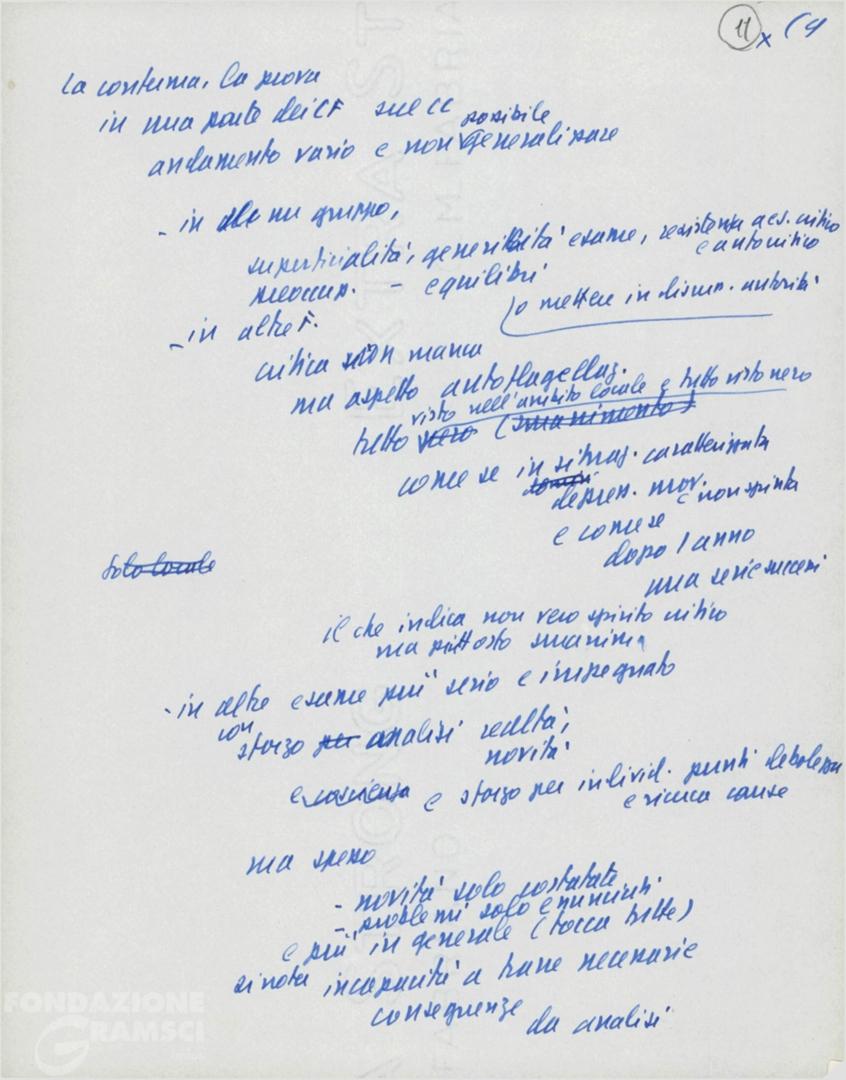 11 x (4
La conferma, la prova
in una parte dei CF sue CC
andamento vario e non possibile generalizzare
- in alcune gruppo,
superficialità, genericità esame, resistenza a es. critico
e autocritico
preoccup. - equilibri
o mettere in discuss. autorità
- in altre F.
critica non manca
ma aspetto autoflagellaz.
visto nell'ambito locale e tutto visto nero
tutto nero (smarrimento)
come se in situaz. caratterizzata
depress. mov.
e non spinta
e come se
dopo 1 anno
una serie successi
Solo locale
il che indica non vero spirito critico
ma piuttosto smarrim.
- in altre esame più serio e impegnato
con sforzo per analisi realtà,
novità
e coscienza e sforzo per individ. punti debolezza
e ricerca cause
ma spesso
- novità solo costatate
- problemi solo enunciati
e più in generale (tocca tutte)
si nota incapacità a trarre necessarie
conseguenze da analisi
FONDAZIONE
GRAMSCI